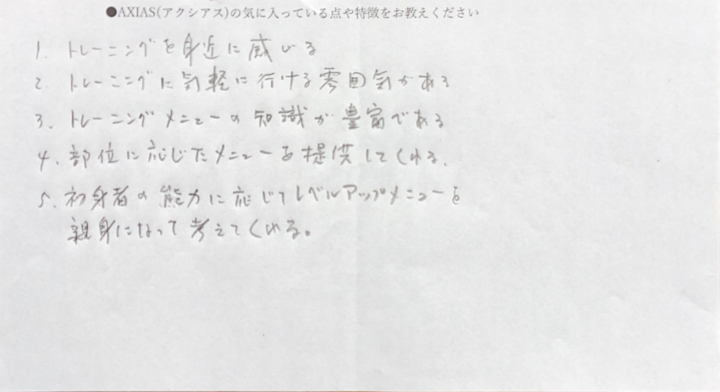 ●AXIAS(アクシアス)の気に入っている点や特徴をお教えください
1. トレーニングを身近に感じる
2. トレーニングに気軽に行ける雰囲気がある
3. トレーニングメニューの知識が豊富である
4. 部位に応じたメニューを提供してくれる.
5. 初身者の能力に応じてレベルアップメニューを
親身になって考えてくれる。